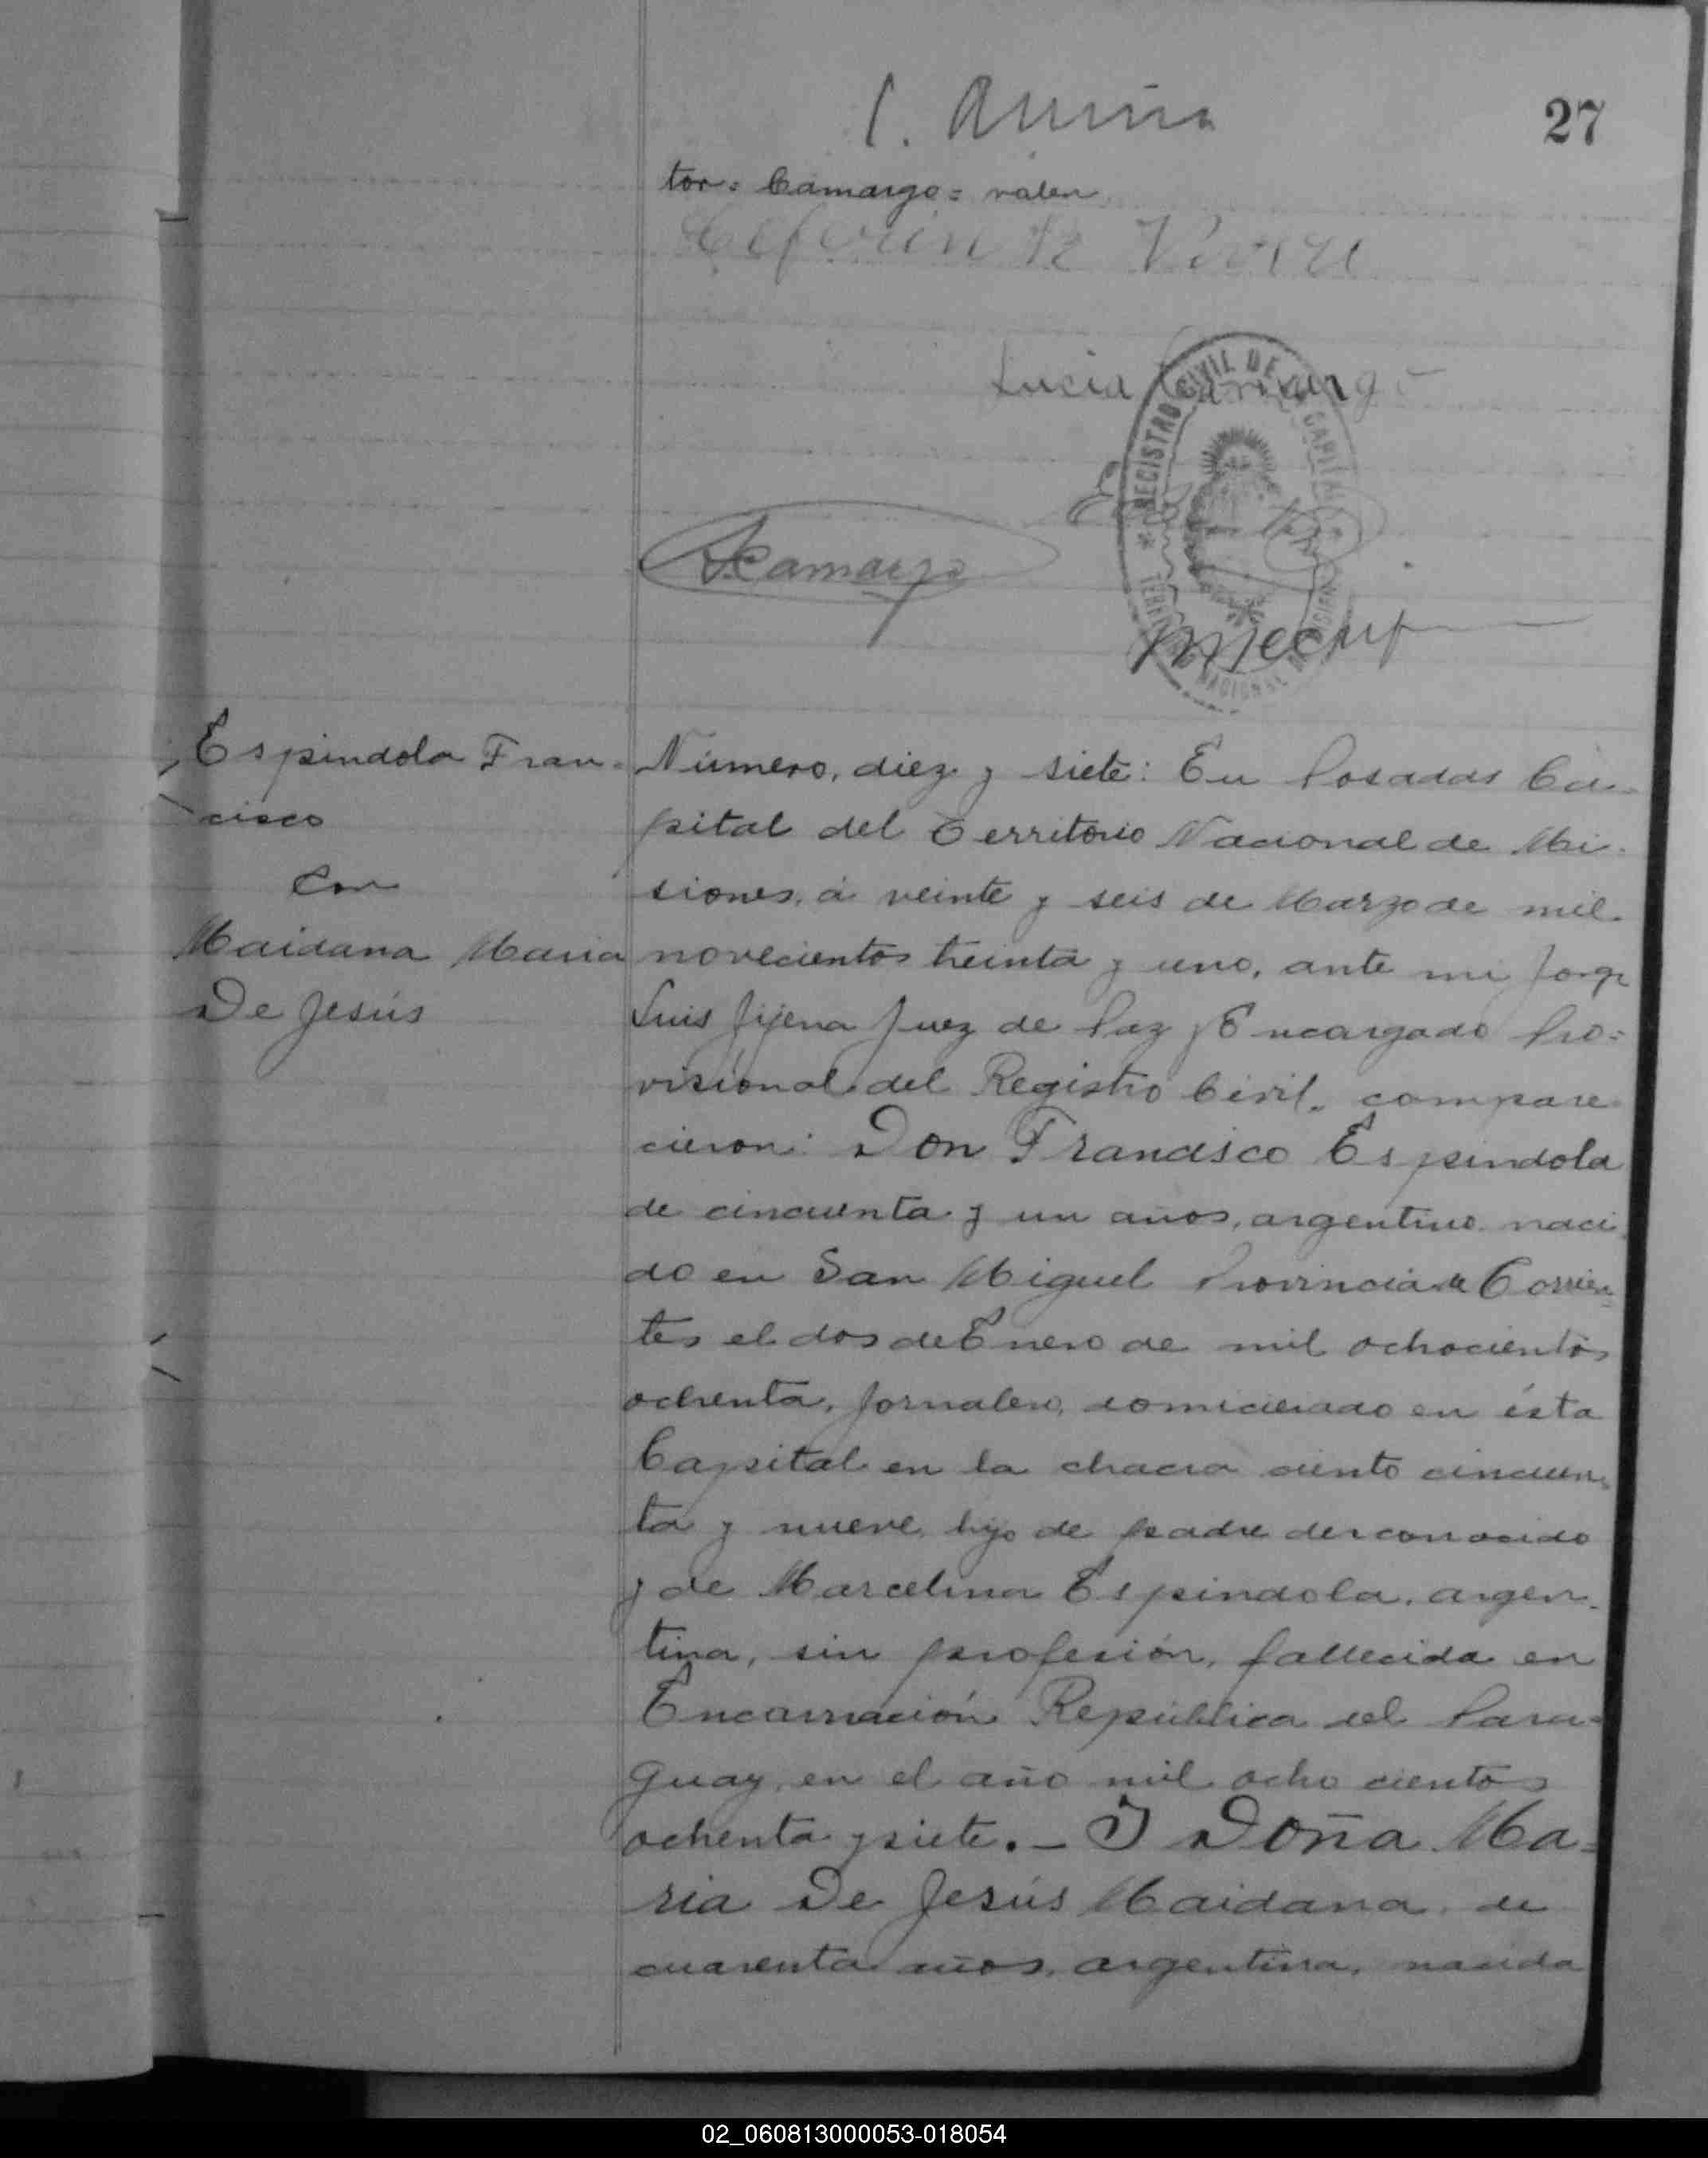 27
tor = Camargo = valen
Lucia Camargo
REGISTRO CIVIL DE LA CAPITAL
TERRITORIO NACIONAL DE MISIONES
Camargo
Espindola Fran-
cisco
Con
Maidana Maria
De Jesús
Número, diez y siete: En Posadas Ca-
pital del Territorio Nacional de Mi-
siones, á veinte y seis de Marzo de mil
novecientos treinta y uno, ante mi Jorge
Luis Jijena Juez de Paz y Encargado Pro=
visional del Registro Civil. compare
cieron: Don Francisco Espindola
de cincuenta y un años, argentino naci
do en San Miguel Provincia de Corrien=
tes el dos de Enero de mil ochocientos
ochenta, jornalero, domiciliado en ésta
Capital en la chacra ciento cincuen=
ta y nueve, hijo de padre desconocido
y de Marcelina Espindola, argen-
tina, sin profesión, fallecida en
Encarnación República del Para=
guay, en el año mil ocho cientos
ochenta y siete. — Y Doña Ma=
ria De Jesús Maidana, de
cuarenta años, argentina, nacida
02_060813000053-018054